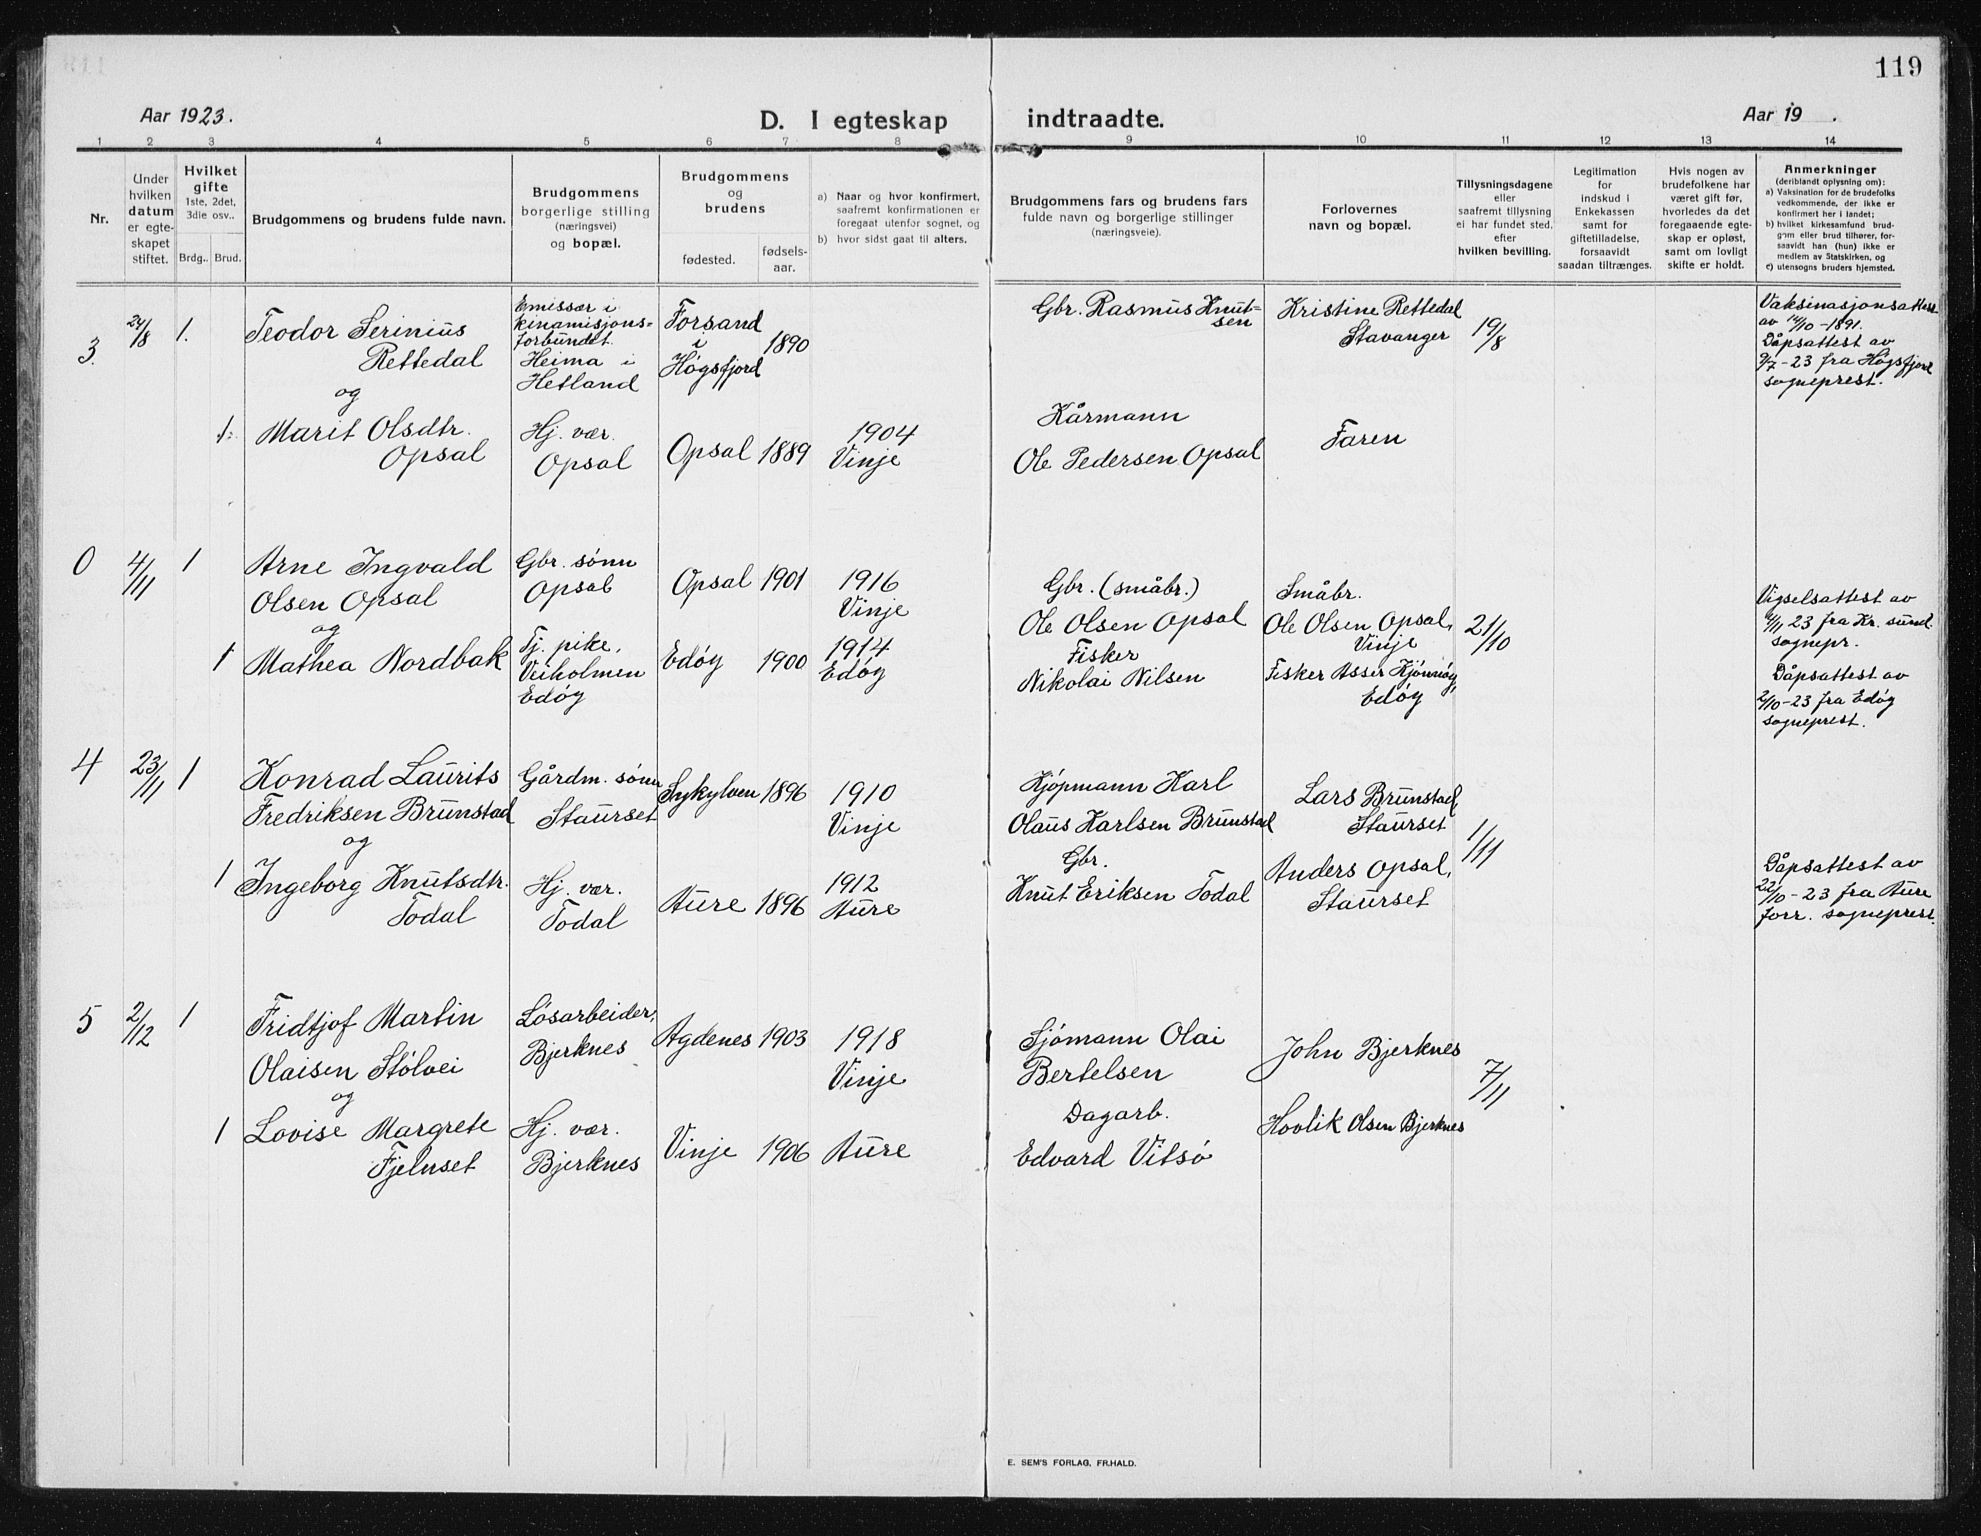 119
Aar 1923.
D. I egteskap indtraadte.
Aar 19 .
1 2 3 4 5 6 7 8 9 10 11 12 13 14
Nr.
Under hvilken datum er egteskapet stiftet.
Hvilket gifte 1ste, 2det, 3die osv..
Brdg.. Brud.
Brudgommens og brudens fulde navn.
Brudgommens borgerlige stilling (næringsvei) og bopæl.
Brudgommens og brudens
fødested.
fødselsaar.
a) Naar og hvor konfirmert, saafremt konfirmationen er foregaat utenfor sognet, og
b) hvor sidst gaat til alters.
Brudgommens fars og brudens fars fulde navn og borgerlige stillinger (næringsveie).
Forlovernes navn og bopæl.
Tillysningsdagene eller saafremt tillysning ei har fundet sted, efter hvilken bevilling.
Legitimation for indskud i Enkekassen samt for giftetilladelse, forsaavidt saadan tiltrænges.
Hvis nogen av brudefolkene har været gift før, hvorledes da det foregaaende egteskap er opløst, samt om lovligt skifte er holdt.
Anmerkninger (deriblandt oplysning om):
a) Vaksination for de brudefolks vedkommende, der ikke er konfirmert her i landet;
b) hvilket kirkesamfund brudgom eller brud tilhører, forsaavidt han (hun) ikke er medlem av Statskirken, og
c) utensogns bruders hjemsted.
3. 24/8 1.
Teodor Serinius
Rettedal
og
Emissær i
kinamisjons-
forbundet.
Heima i
Hetland
Forsand
i
Høgsfjord
1890
Gbr. Rasmus Knut-
sen
Kristine Rettedal
Stavanger
19/8
Vaksinasjonsattest
av 14/10-1891.
Dåpsattest av
9/7-23 fra Høgsfjord
sogneprest.
1.
Marit Olsdtr.
Opsal
Hj. vær.
Opsal
Opsal 1889
1904
Vinje
Kårmann
Ole Pedersen Opsal
Faren
0 4/11 1
Arne Ingvald
Olsen Opsal
og
Gbr. sønn
Opsal
Opsal 1901
1916
Vinje
Gbr. (småbr.)
Ole Olsen Opsal
Småbr.
Ole Olsen Opsal,
Vinje
21/10
Vigselsattest av
4/11 23 fra Kr. sund.
sognepr.
1
Mathea Nordbak
Tj. pike,
Veiholmen
Edøy
Edøy 1900
1914
Edøy
Fisker
Nikolai Nilsen
Fisker Asser Kjønnøy,
Edøy
Dåpsattest av
2/10-23 fra Edøy
sogneprest.
4 23/11 1
Konrad Laurits
Fredriksen Brunstad
og
Gårdm. sønn
Staurset
Sykylven 1896
1910
Vinje
Kjøpmann Karl
Olaus Karlsen Brunstad
Lars Brunstad,
Staurset
1/11
1
Ingeborg Knutsdtr.
Todal
Hj. vær.
Todal
Aure 1896
1912
Aure
Gbr.
Knut Eriksen Todal
Anders Opsal,
Staurset
Dåpsattest av
22/10-23 fra Aure
forr. sogneprest.
5 2/12 1
Fridtjof Martin
Olaisen Stølvei
og
Løsarbeider,
Bjerknes
Agdenes 1903
1918
Vinje
Sjømann Olai
Bertelsen
John Bjerknes
7/11
1
Lovise Margrete
Fjelnset
Hj. vær.
Bjerknes
Vinje 1906 Aure
Dagarb.
Edvard Vitsø
Hovlik Olsen Bjerknes
E. SEM'S FORLAG, FR.HALD.